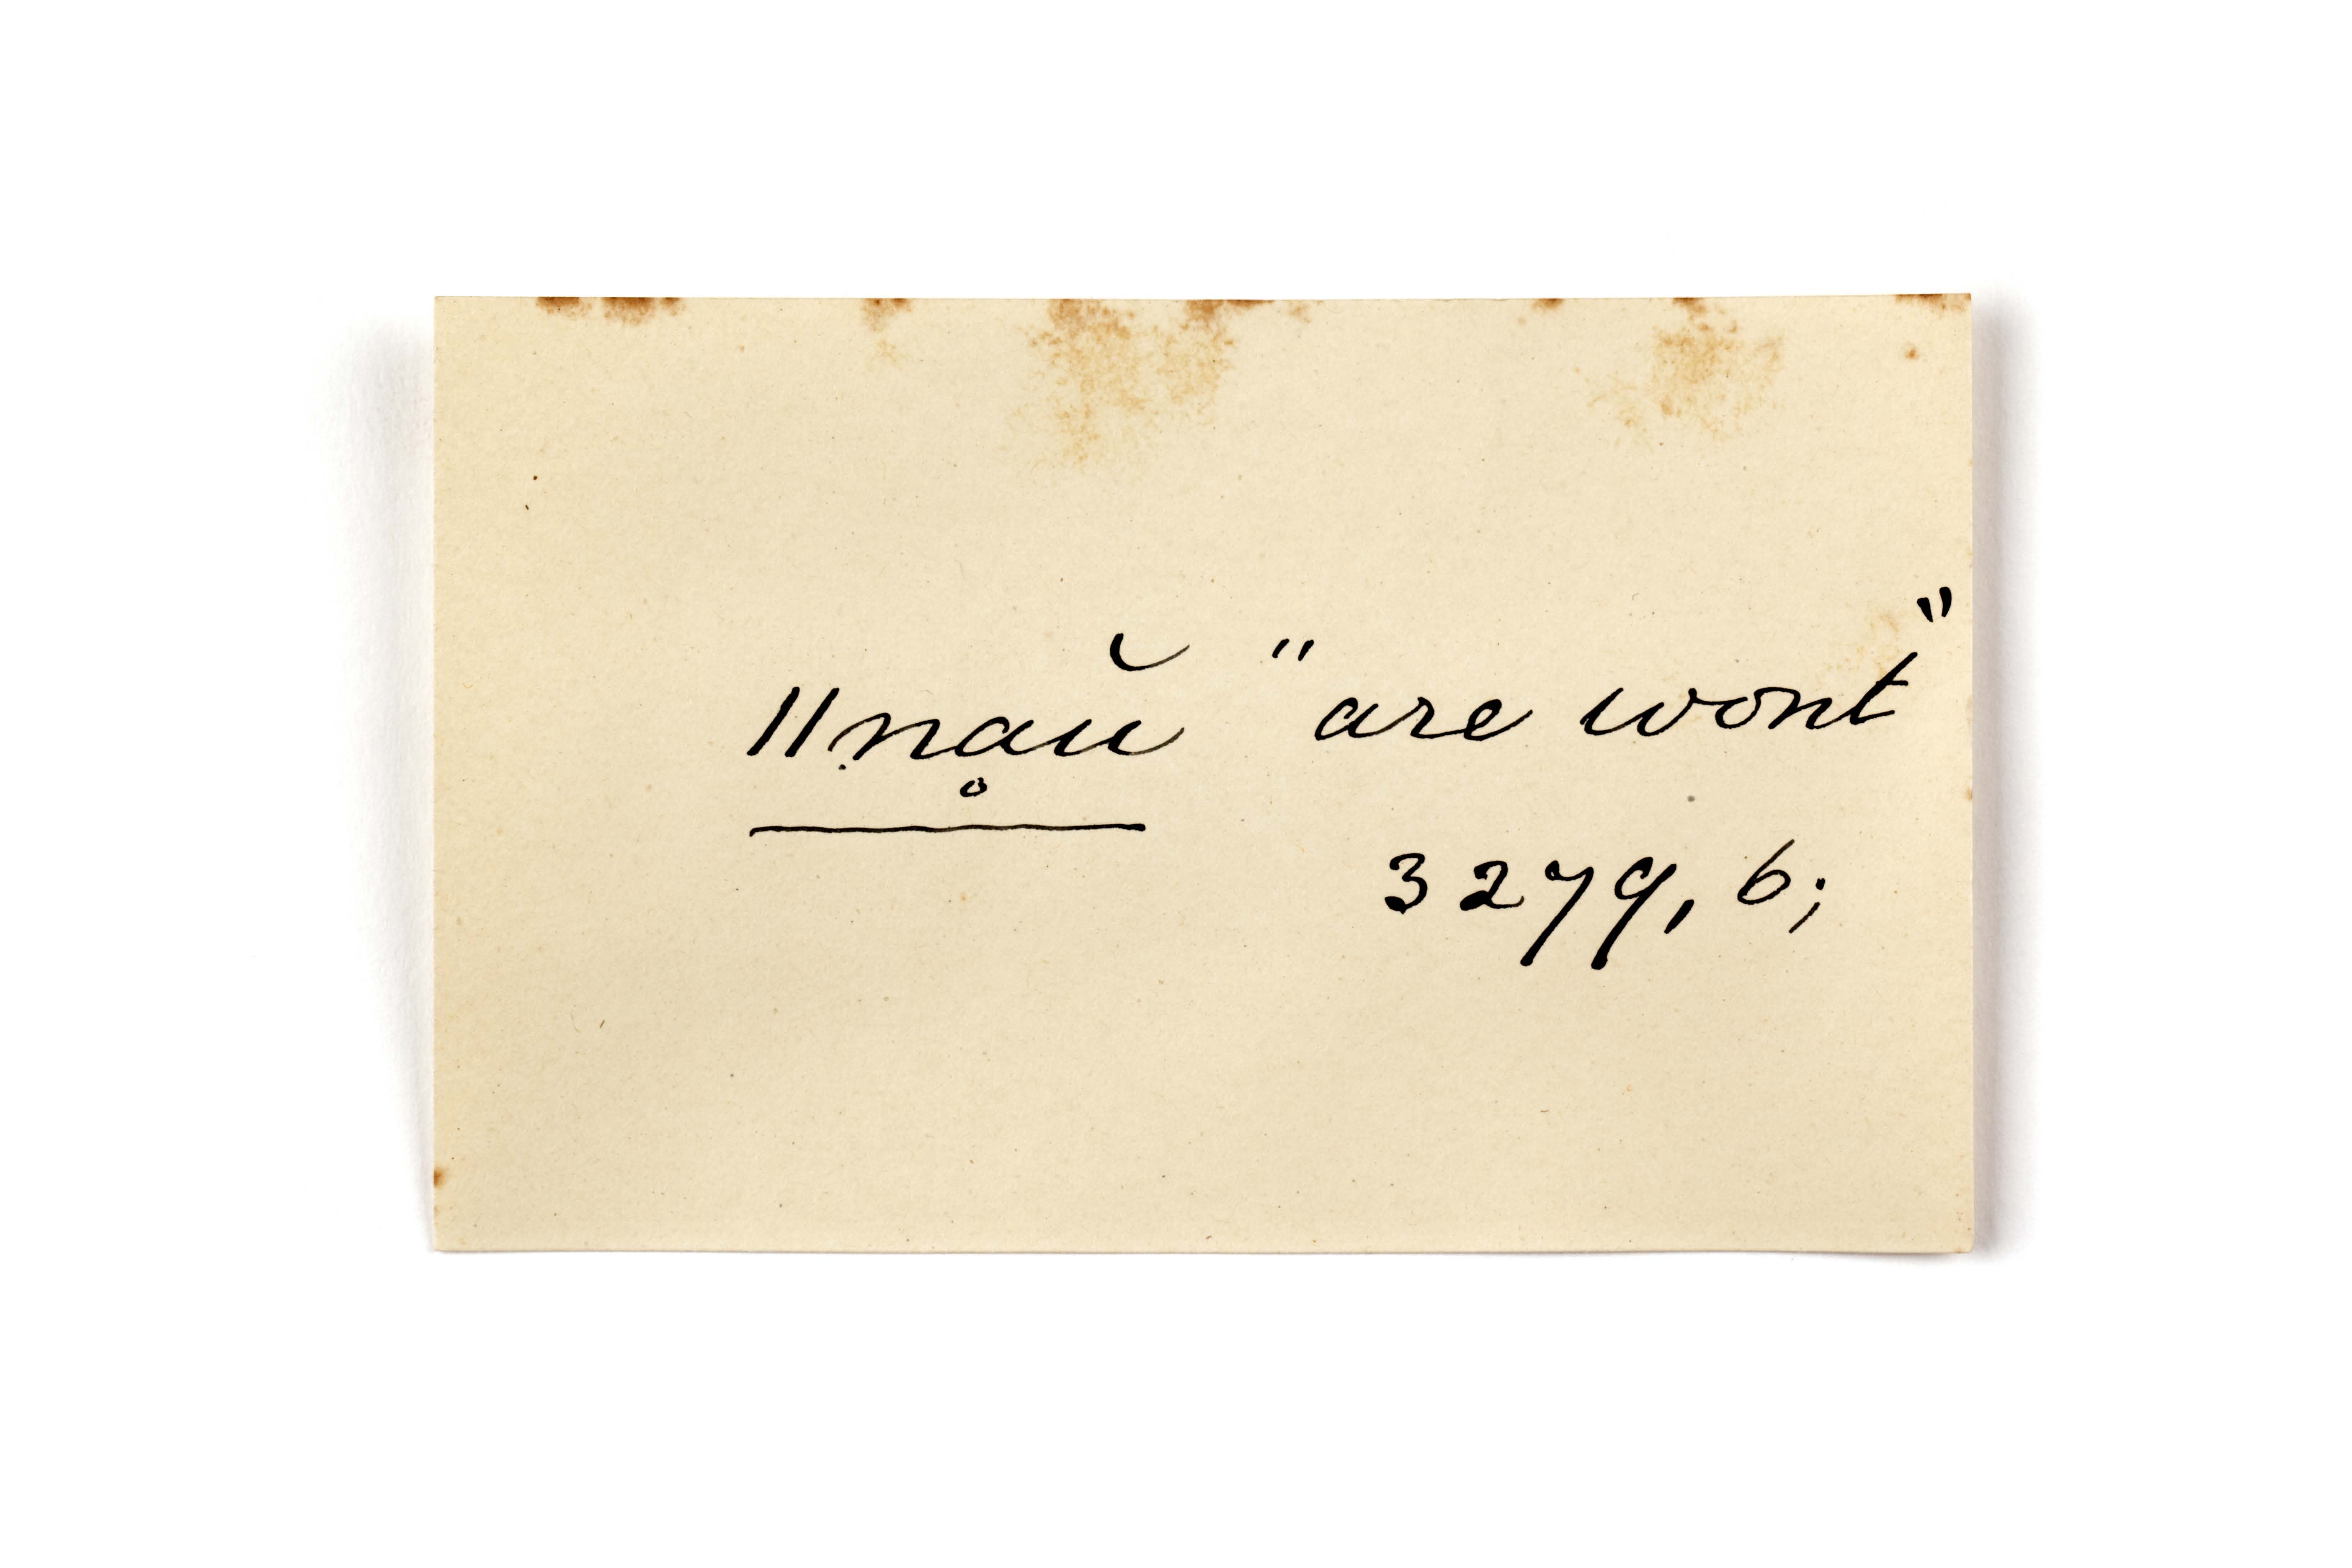 ǁṇḁŭ "are wont"
3279, b;